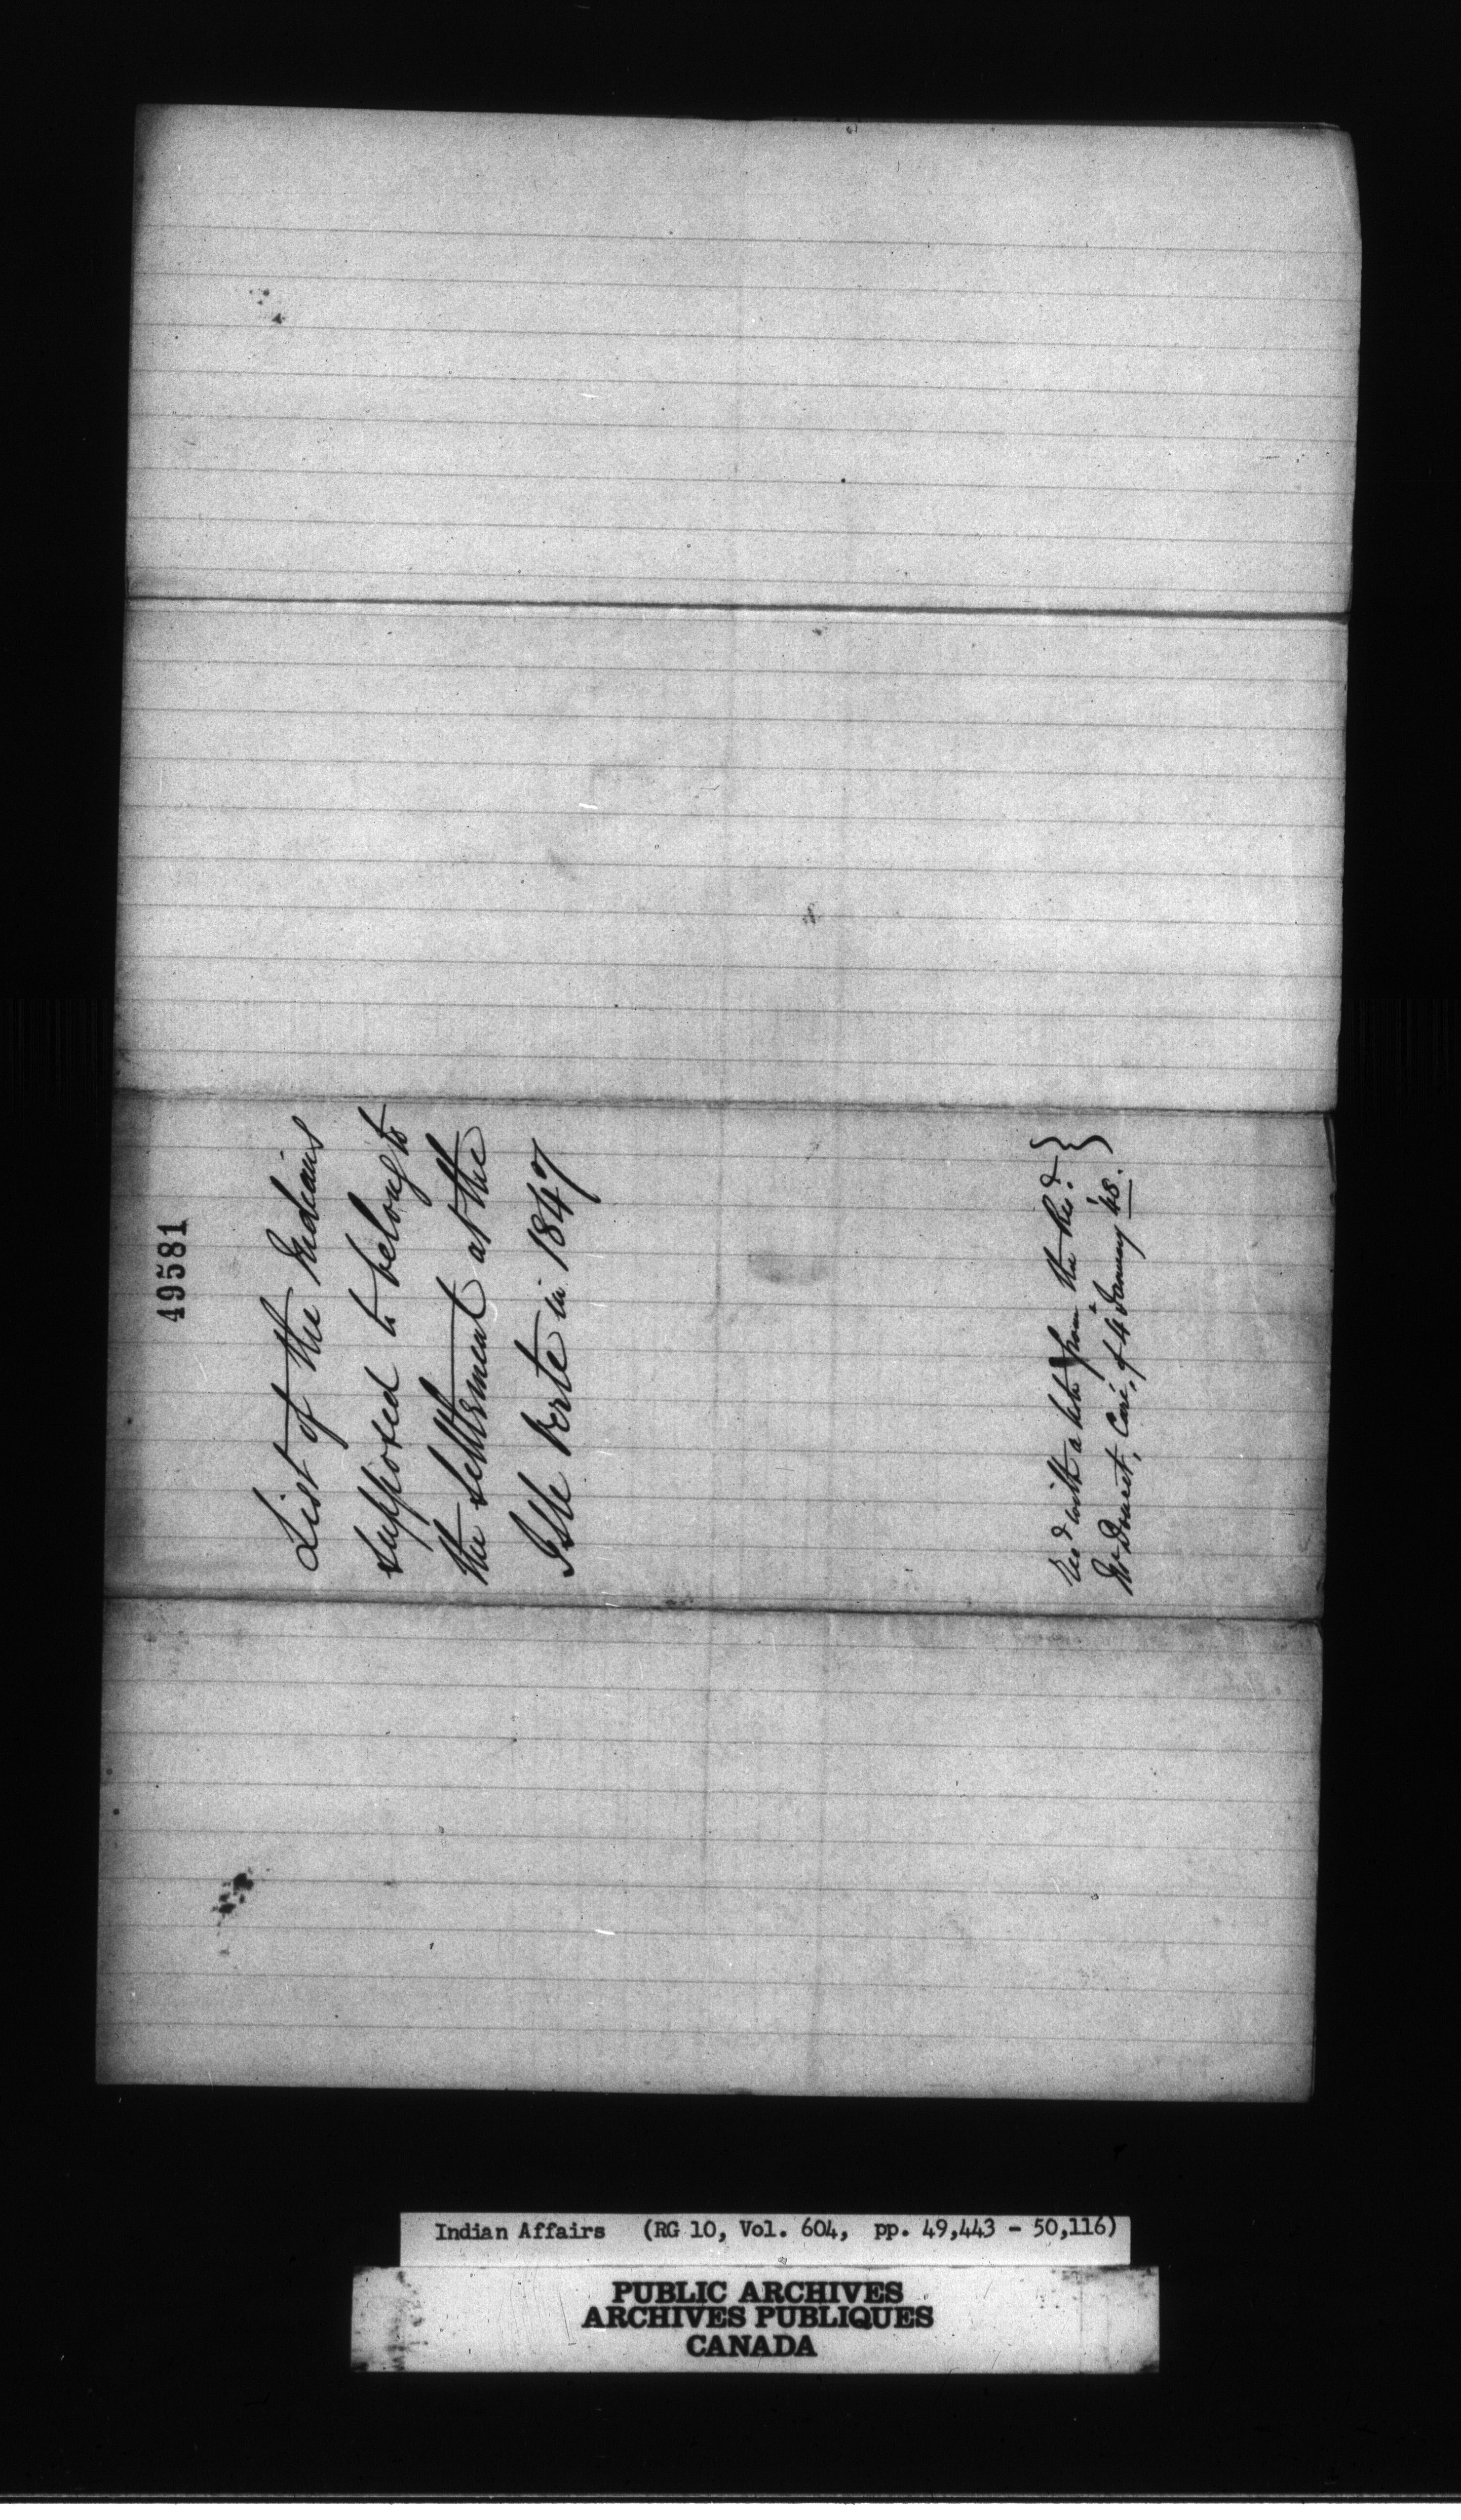 49581
List of the Indians
supposed to belong to
the settlement at the
Isle Verte in 1847
Recd with a letter from the Revd.
Mr Doucet, Curé, of 4 January '48.
Indian Affairs (RG 10, Vol. 604, pp. 49,443 - 50,116)
PUBLIC ARCHIVES
ARCHIVES PUBLIQUES
CANADA